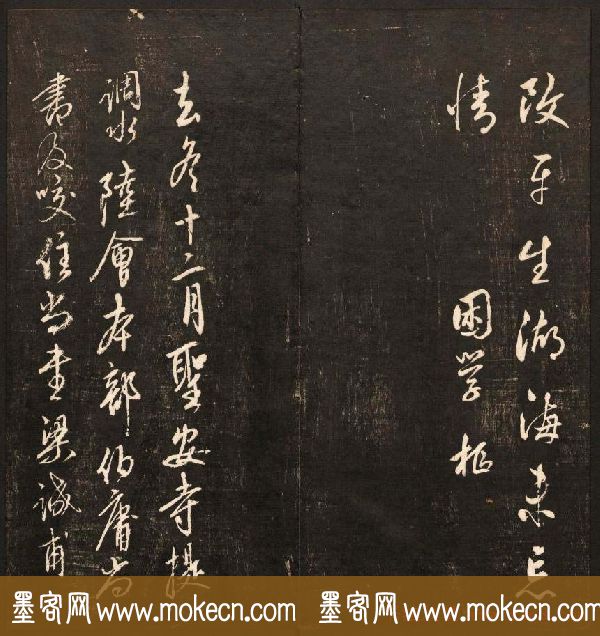 改平生湖海未忘
情 困學 枢
去冬十二月聖安寺提
調水陸會本部伯庸尚
書及咬住尚書梁誠甫
墨客网 www.mokecn.com 墨客网 www.mokecn.com